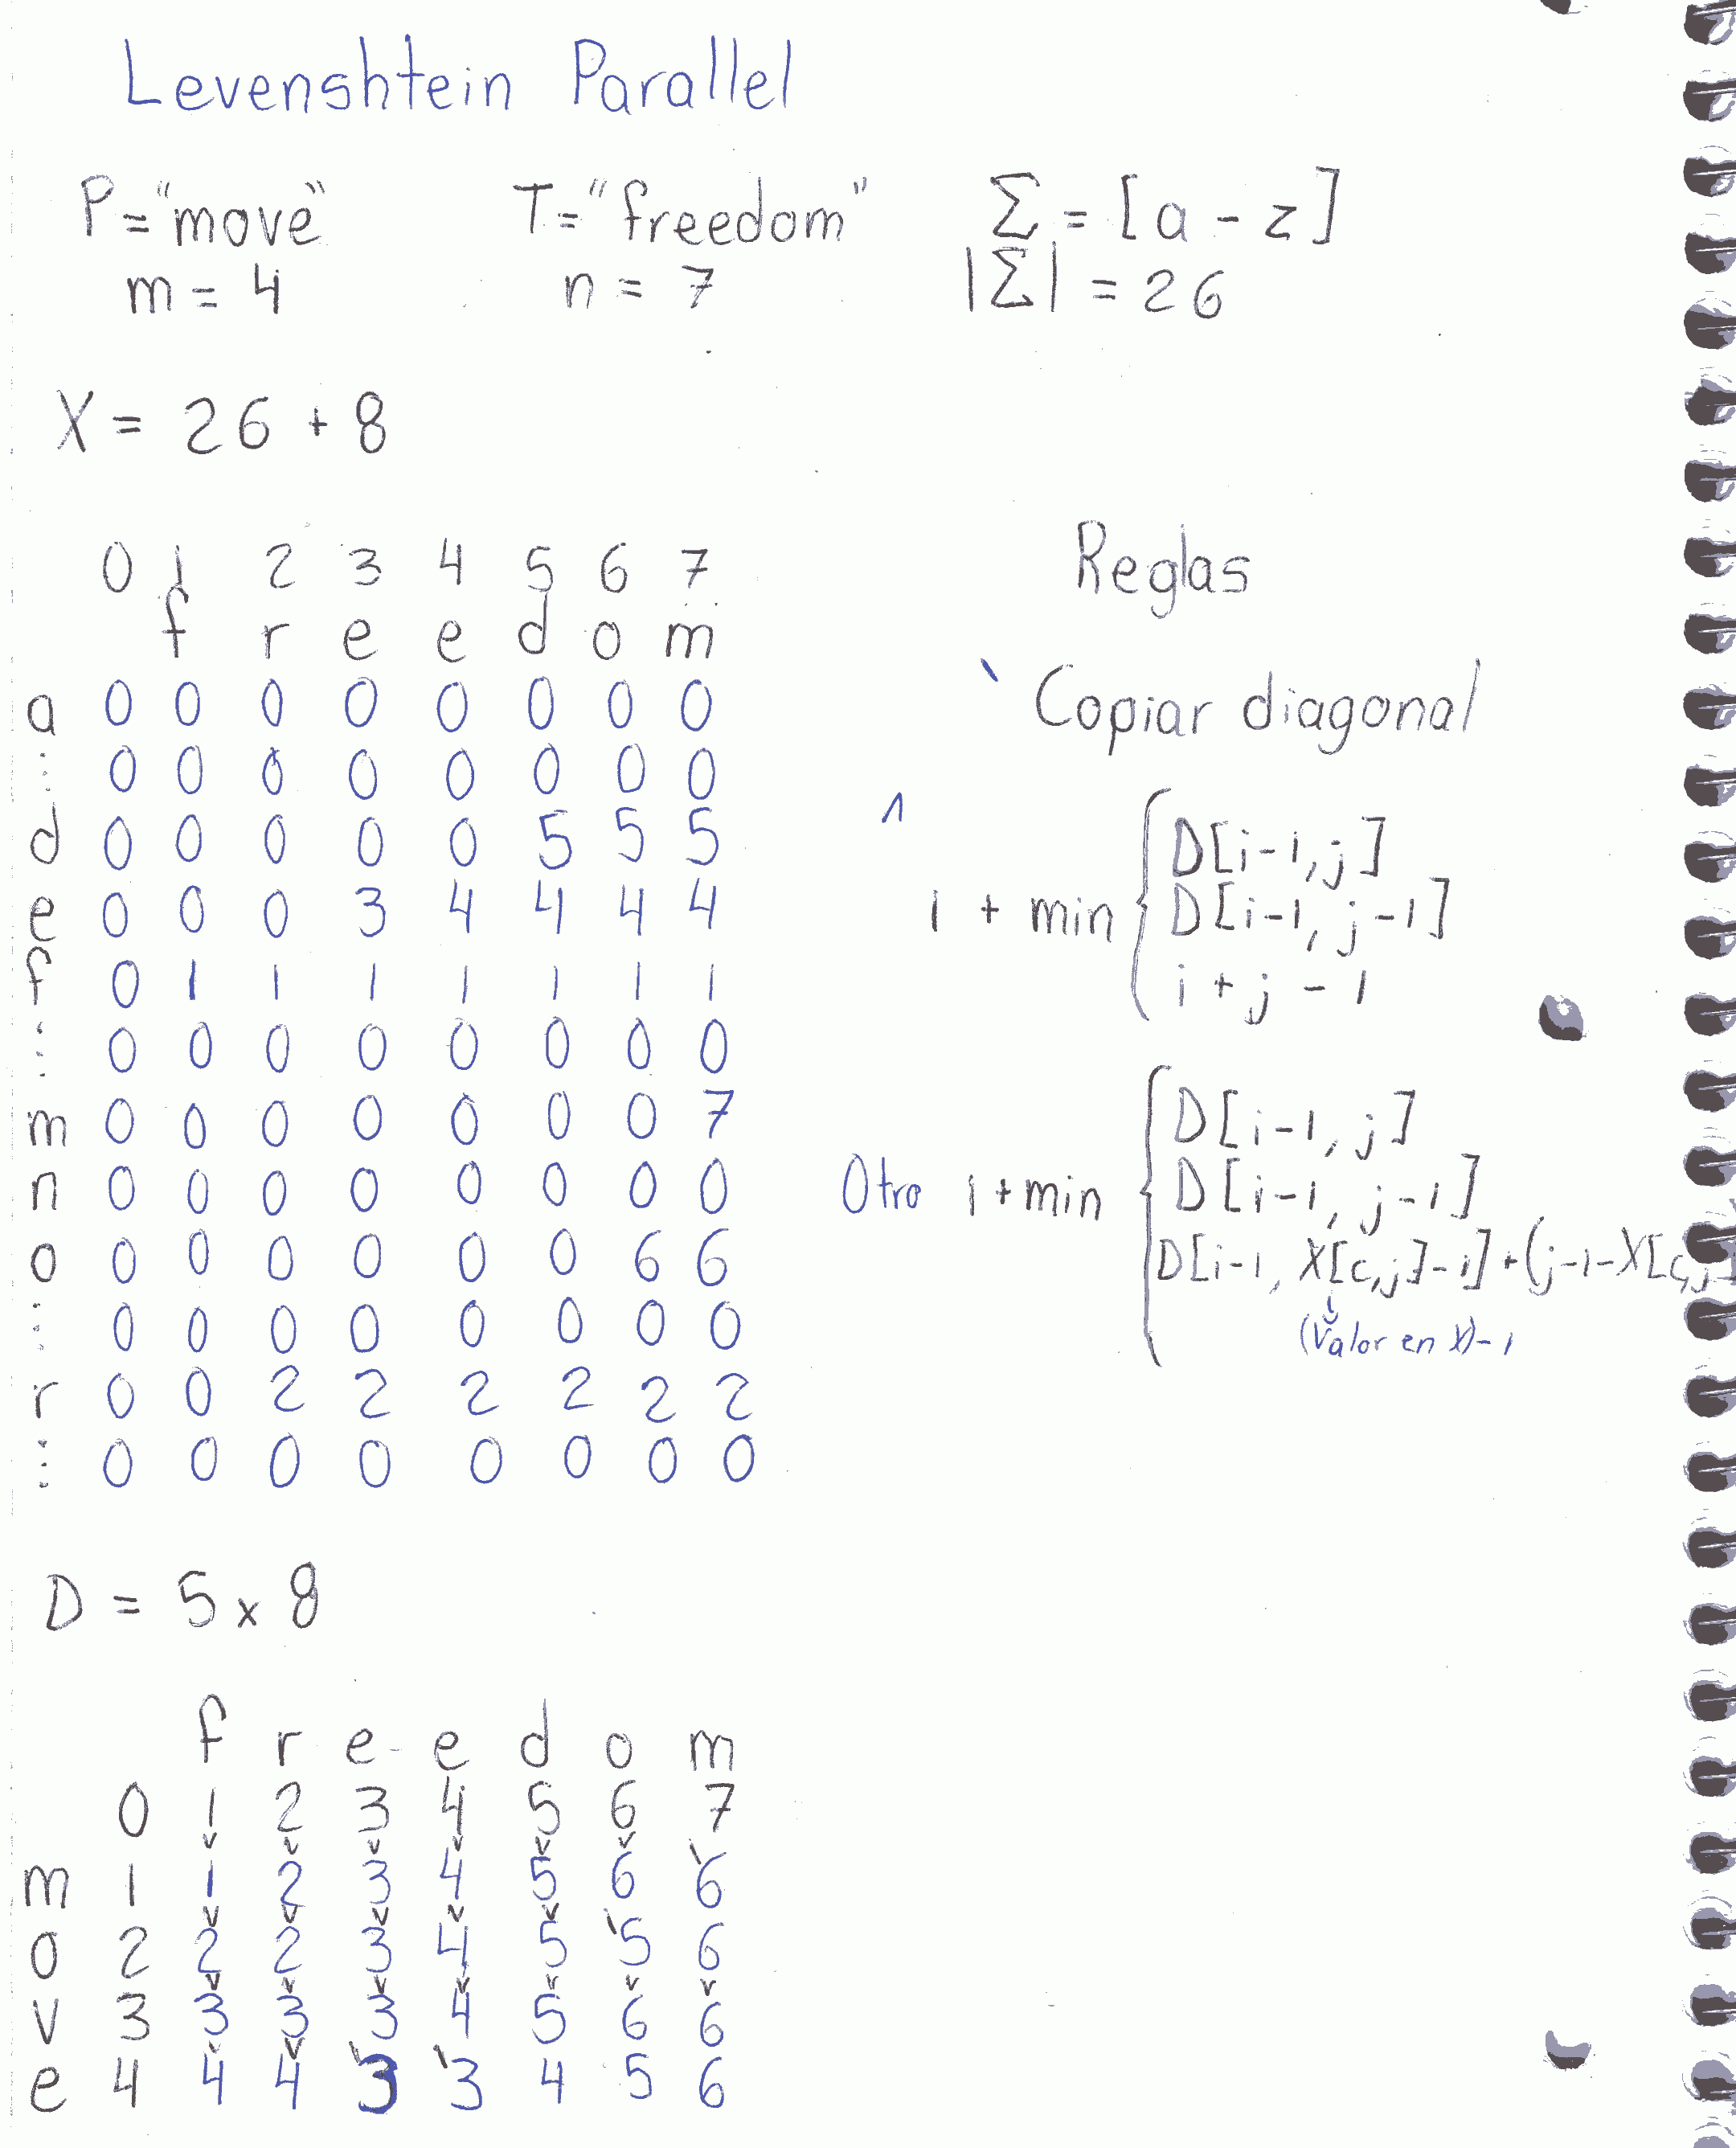 Levenshtein Parallel
P = "move" T = "freedom" Σ = [a - z]
m = 4 n = 7 |Σ| = 26
X = 26 + 8
0 1 2 3 4 5 6 7
f r e e d o m
a 0 0 0 0 0 0 0 0
⋮ 0 0 0 0 0 0 0 0
d 0 0 0 0 0 5 5 5
e 0 0 0 3 4 4 4 4
f 0 1 1 1 1 1 1 1
⋮ 0 0 0 0 0 0 0 0
m 0 0 0 0 0 0 0 7
n 0 0 0 0 0 0 0 0
o 0 0 0 0 0 0 6 6
⋮ 0 0 0 0 0 0 0 0
r 0 0 2 2 2 2 2 2
⋮ 0 0 0 0 0 0 0 0
Reglas
` Copiar diagonal
1
1 + min { D[i-1, j]
D[i-1, j-1]
i + j - 1
Otro 1 + min { D[i-1, j]
D[i-1, j-1]
D[i-1, X[c,j]-1] + (j-1-X[c,j
(Valor en X)-1
D = 5 x 8
f r e e d o m
0 1 2 3 4 5 6 7
m 1 1 2 3 4 5 6 6
o 2 2 2 3 4 5 5 6
v 3 3 3 3 4 5 6 6
e 4 4 4 3 3 4 5 6